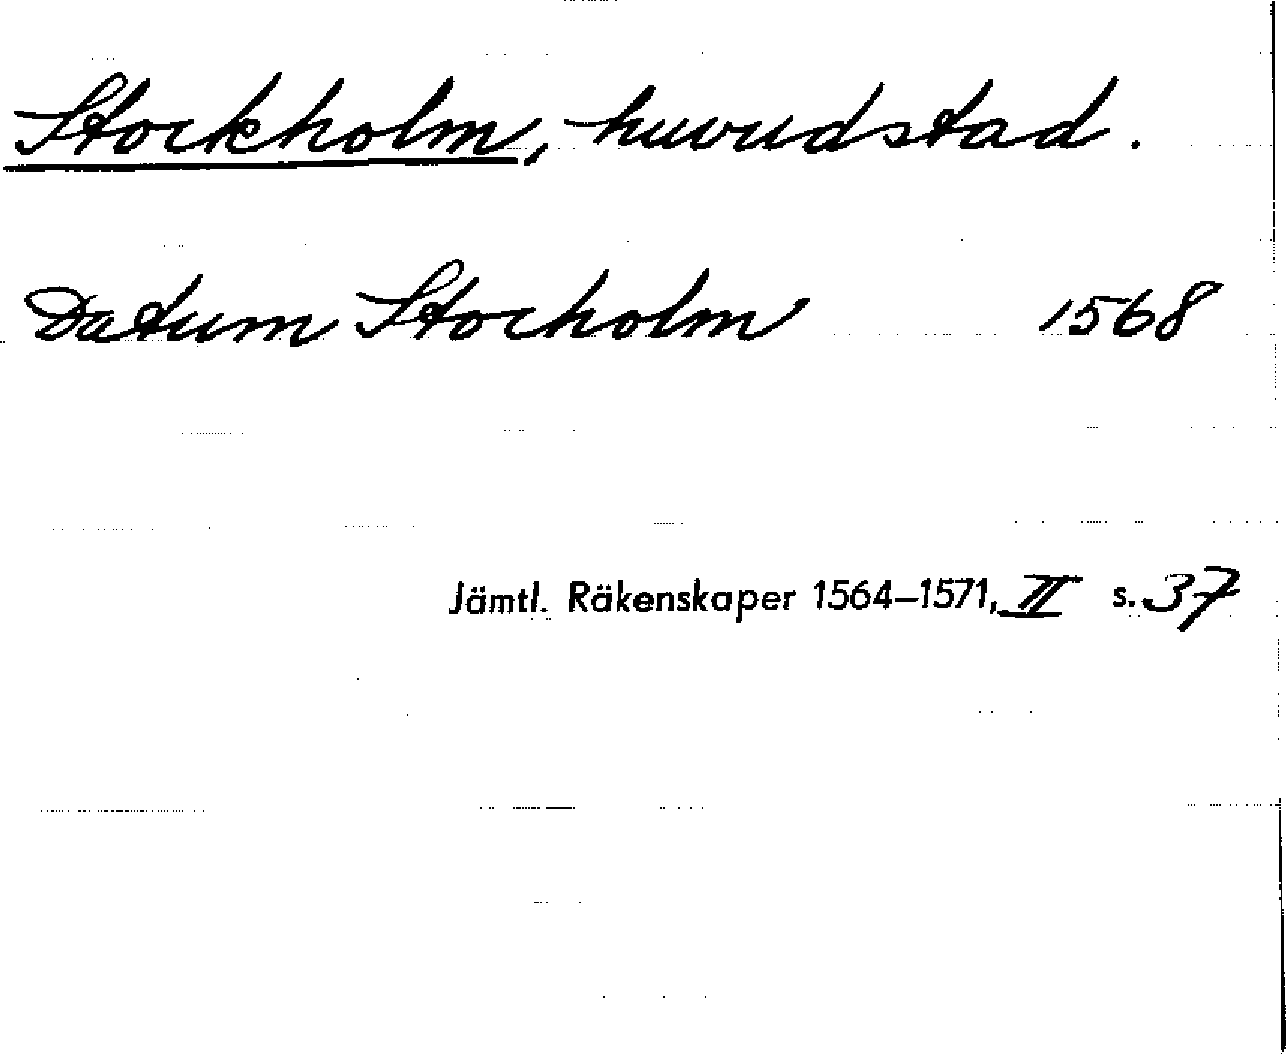 Stockholm, huvudstad.
Datum Stocholm 1568
Jämtl. Räkenskaper 1564–1571, II s. 37